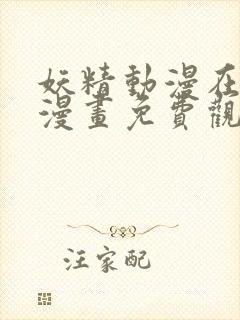 妖精動漫在
漫畫免費觀
汪家配